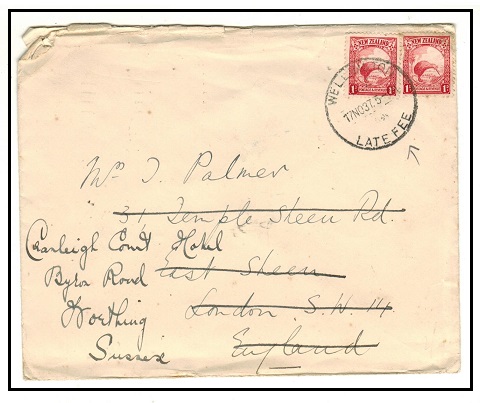 NEW ZEALAND NEW ZEALAND
1D 1D
WELLINGTON
17NO37.5
LATE FEE
Mrs J. Palmer
31, Temple Sheen Rd.
Cranleigh Court Hotel
Byron Road East Sheen
Worthing London S.W. 14.
Sussex England